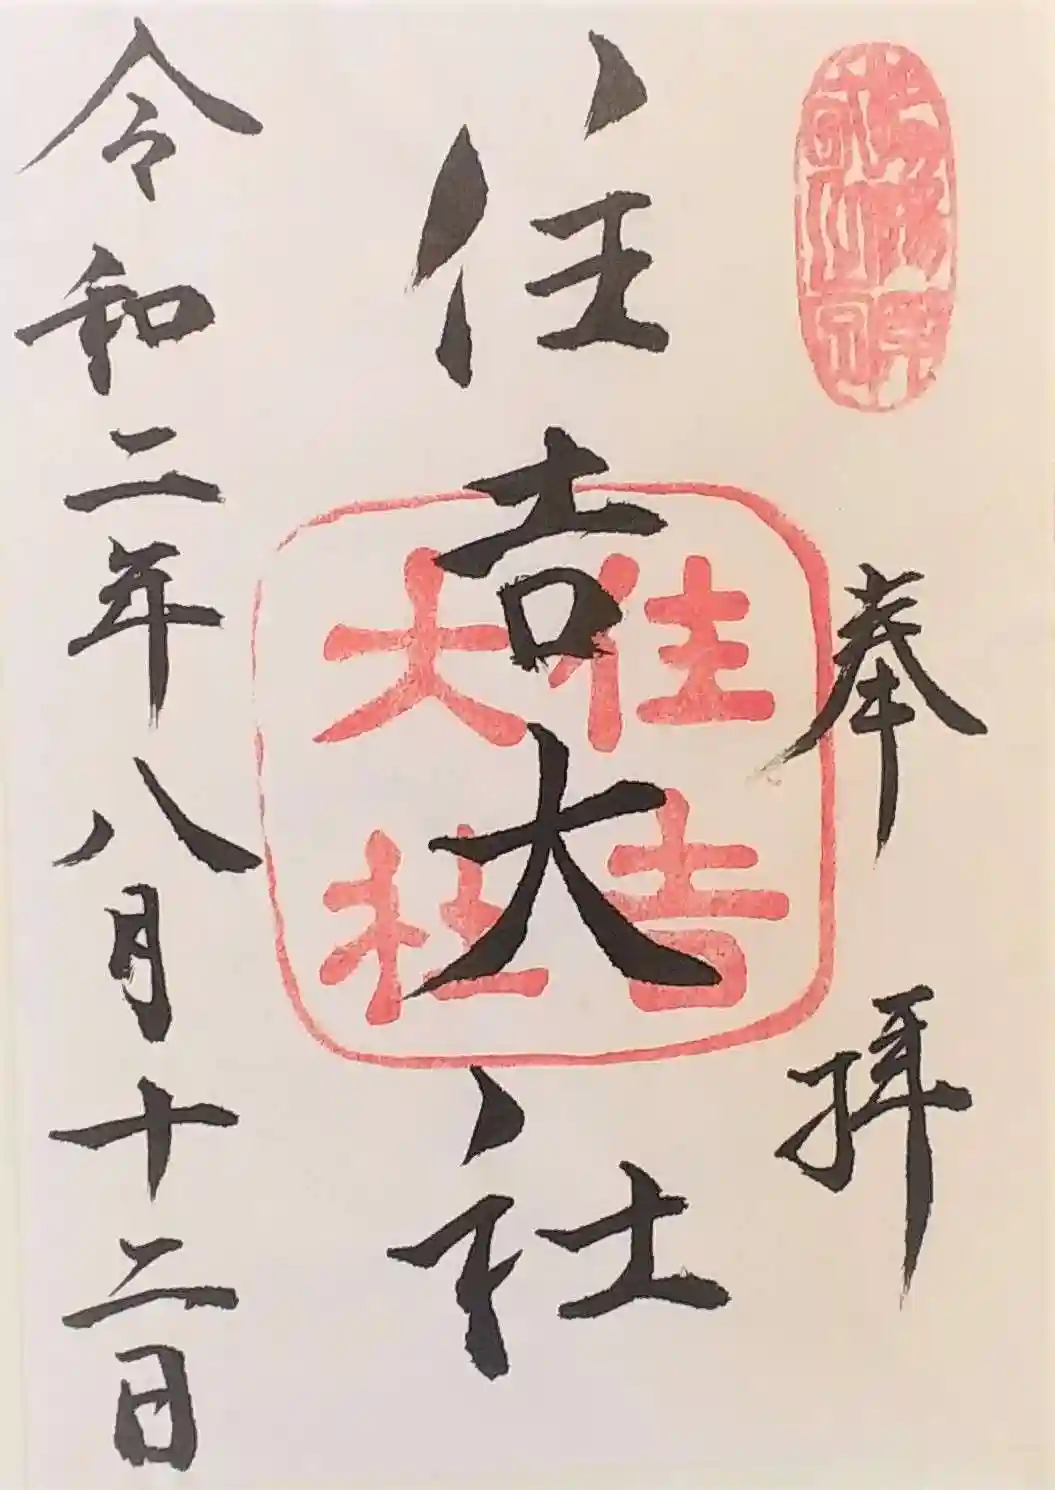 奉拝
住吉大社
住吉
大社
令和二年八月十二日